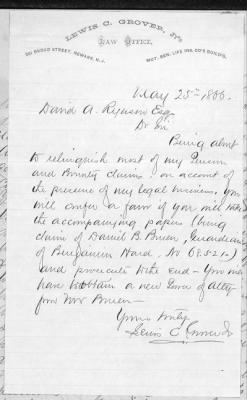 LEWIS C. GROVER, Jr.
LAW OFFICE,
BROAD STREET, NEWARK, N.J. MUT. BEN. LIFE INS. CO'S BUILD'G.
May 25th 188
David A. Esq
Dr Sir
Being about
to relinquish most of my Pension
and Bounty claims, on account of
the pressure of my legal business, you
will confer a favor if you will take
the accompanying papers (being
claim of Daniel B. Bruen, Guardian
of Benjamin Ward, No
and prosecute to the end - You may
have to obtain a new Power of Atty
from Mr Bruen -
Yours truly
Lewis C Grover Jr